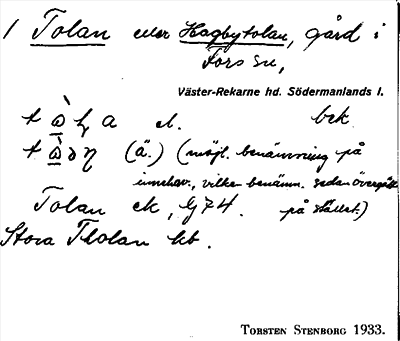 1 Tolan eller Hagbytolan, gård i
Fors sn,
Väster-Rekarne hd. Södermanlands l.
el. bek
(ä.) (möjl. benämning på
innehav., vilken benämn. sedan övergått
Tolan ek, Gj 74. på stället.)
Stora Tholan kb.
TORSTEN STENBORG 1933.